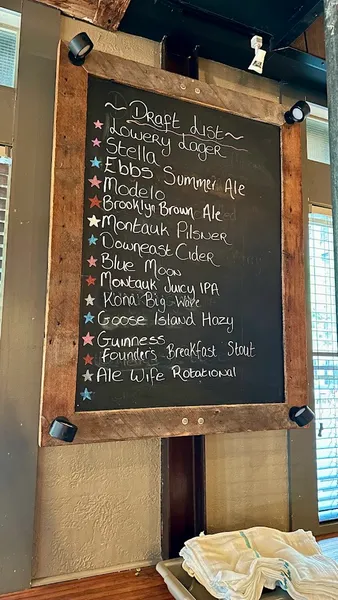 ~ Draft List ~
Lowery Lager
Stella
Ebbs Summer Ale
Modelo
Brooklyn Brown Ale
Montauk Pilsner
Downeast Cider
Blue Moon
Montauk Juicy IPA
Kona Big Wave
Goose Island Hazy
Guinness
Founders Breakfast Stout
Ale Wife Rotational